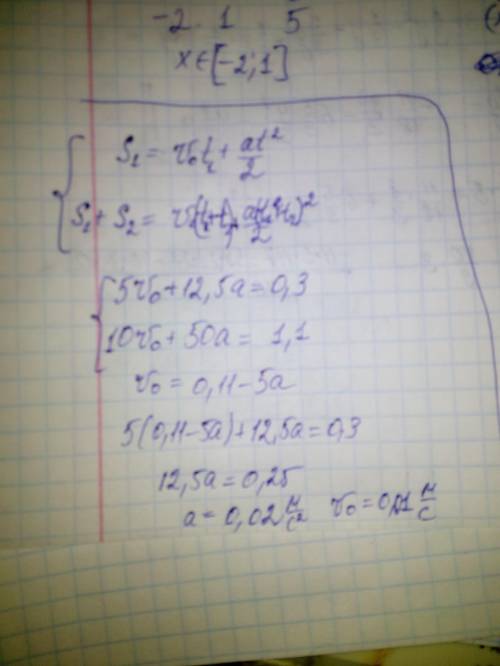 -2 1 5
x∈[-2;1]
S₁ = v₀t₁ + at²/2
S₁ + S₂ = v₀(t₁+t₂)+ a(t₁+t₂)²/2
5v₀ + 12,5a = 0,3
10v₀ + 50a = 1,1
v₀ = 0,11 - 5a
5(0,11-5a)+12,5a=0,3
12,5a = 0,25
a = 0,02 м/с² v₀ = 0,01 м/с